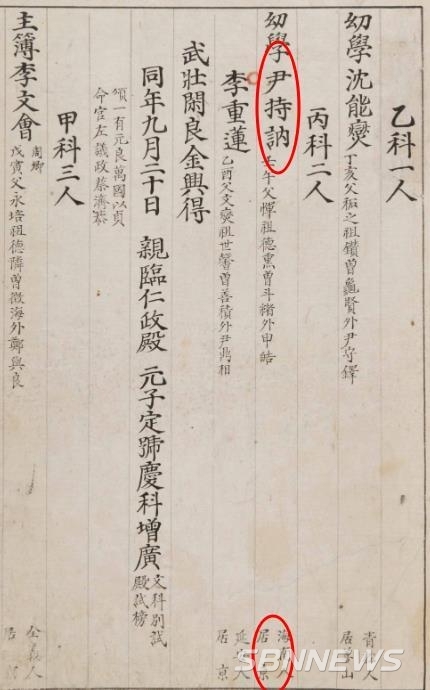 乙科一人
幼學沈能燮
丁亥父稷之祖鑽曾龜賢外尹守鐸
青松人
丙科二人
幼學尹持訥
壬午父愇祖德熏曾斗緖外申皓
海南人
居京
李重蓮
乙酉父文燮祖世馨曾善積外尹兆相
延安人
居京
武壯閑良金興得
同年九月二十日 親臨仁政殿 元子定號慶科增廣
文科別試
殿試榜
頌一有元良萬國以貞
命官左議政蔡濟恭
甲科三人
主簿李文會
周卿
戊寅父永培祖德隣曾徵海外鄭興良
全義人
居
SBNNEWS